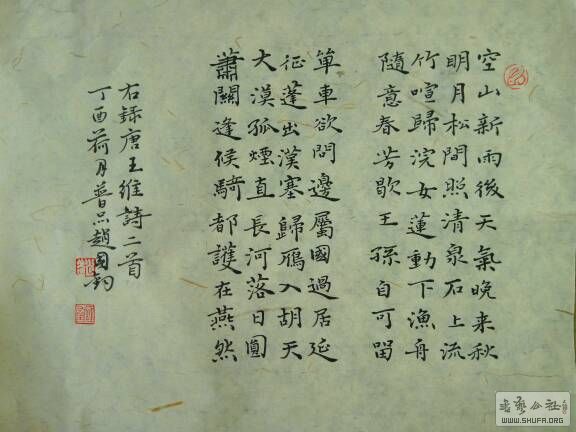 空山新雨後天氣晚来秋
明月松間照清泉石上流
竹喧歸浣女蓮動下漁舟
隨意春芳歇王孫自可畱
單車欲問邊屬國過居延
征蓬出漢塞歸鴈入胡天
大漠孤煙直長河落日圓
蕭關逢候騎都護在燕然
右録唐王維詩二首
丁酉荷月普趙國鈞
书艺公社
WWW.SHUFA.ORG